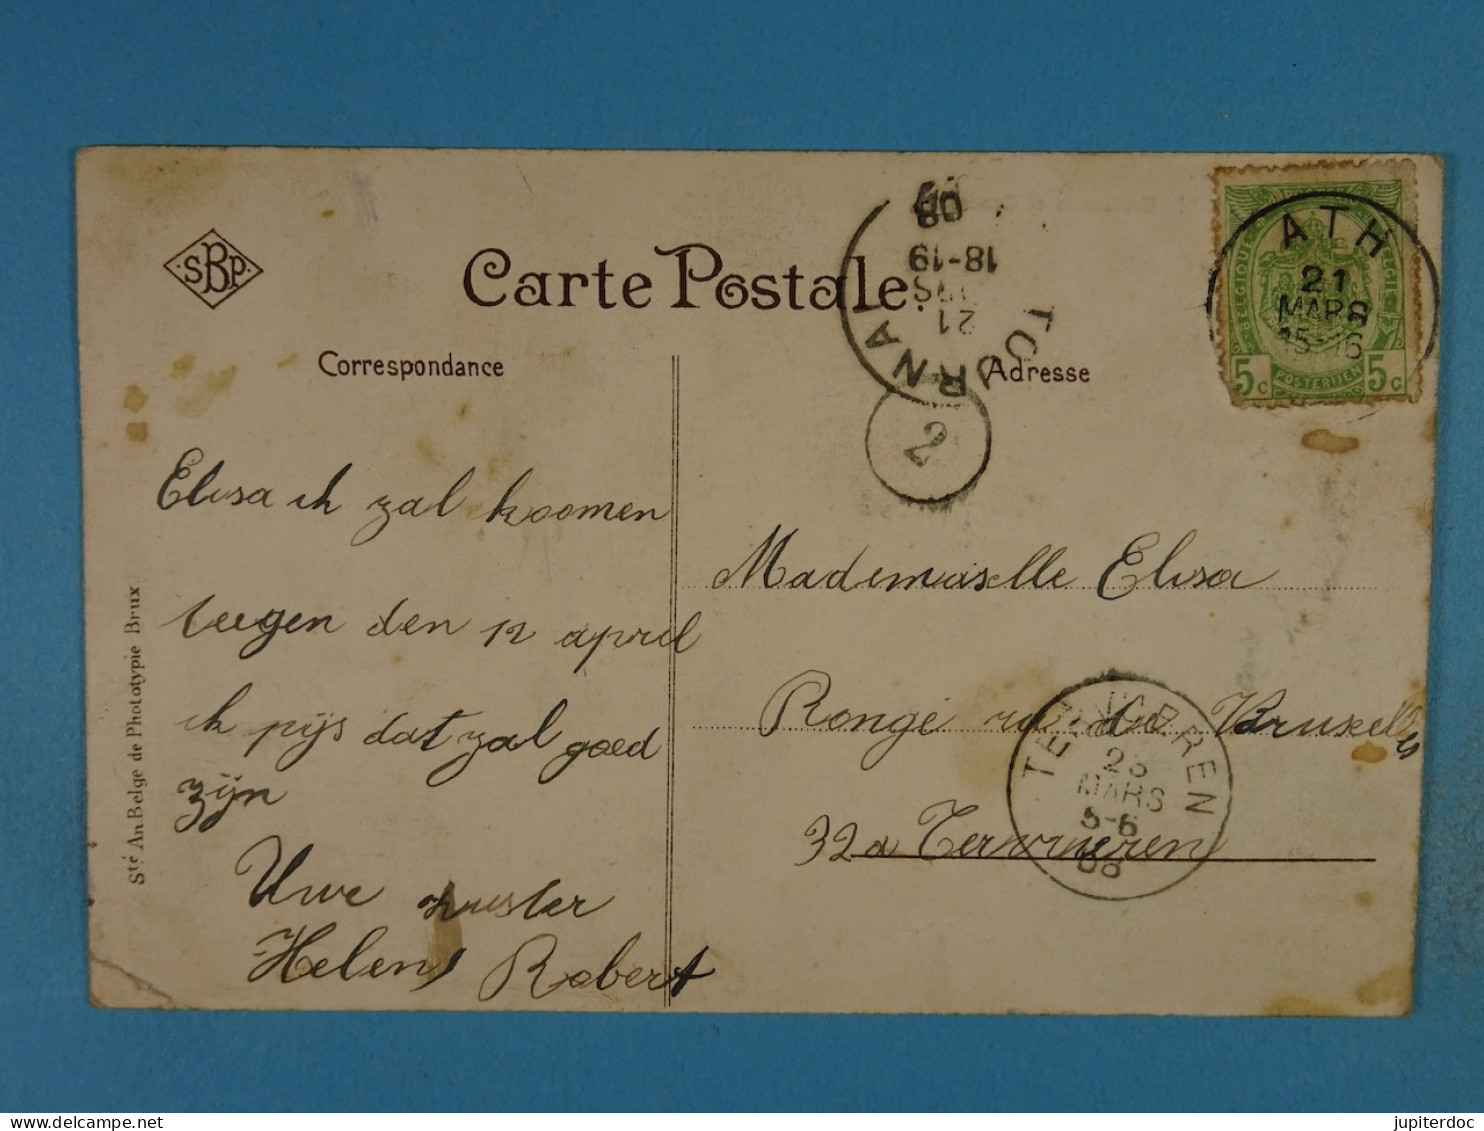 SBP
Carte Postale
Correspondance
Adresse
Elisa ik zal koomen
teegen den 12 april
ik pijs dat zal goed
zijn
Uwe zuster
Helena Robert
Mademaiselle Elisa
Rongé rue de Bruxelles
32a Tervueren
Sté An. Belge de Phototypie Brux
TOURNAI
21
18-19
08
2
ATH
21
MARS
15-16
BELGIQUE
BELGIË
5c
POSTERIJEN
5c
TERVUEREN
23
MARS
5-6
08
jupiterdoc